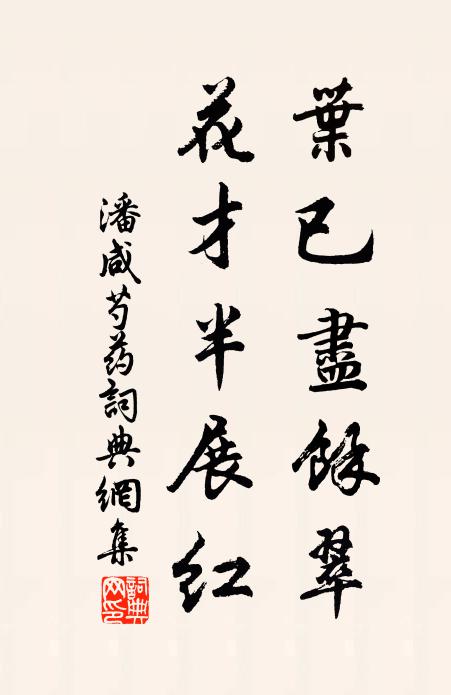 葉已盡餘翠
花才半展紅
潘咸芍药詞典網集
詞典网印